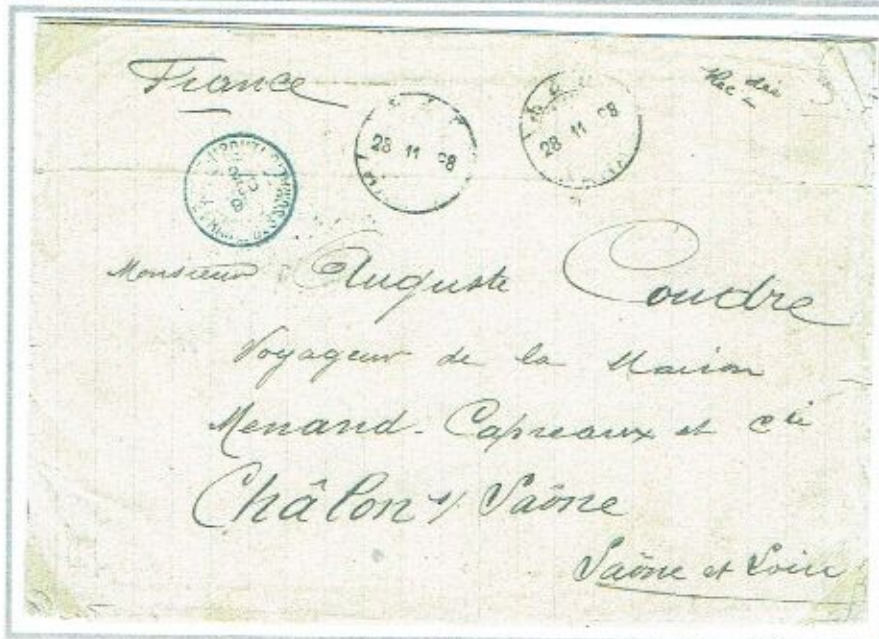 France
28 11 98
28 11 98
Monsieur Auguste Coudre
Voyageur de la Maison
Menand-Capreaux et Cie
Châlon s/ Saône
Saône et Loire